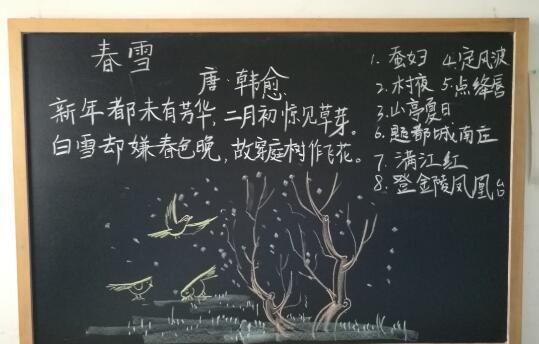 春雪
唐·韩愈
新年都未有芳华，二月初惊见草芽。
白雪却嫌春色晚，故穿庭树作飞花。
1. 蚕妇 4. 定风波
2. 村夜 5. 点绛唇
3. 山亭夏日
6. 题都城南庄
7. 满江红
8. 登金陵凤凰台